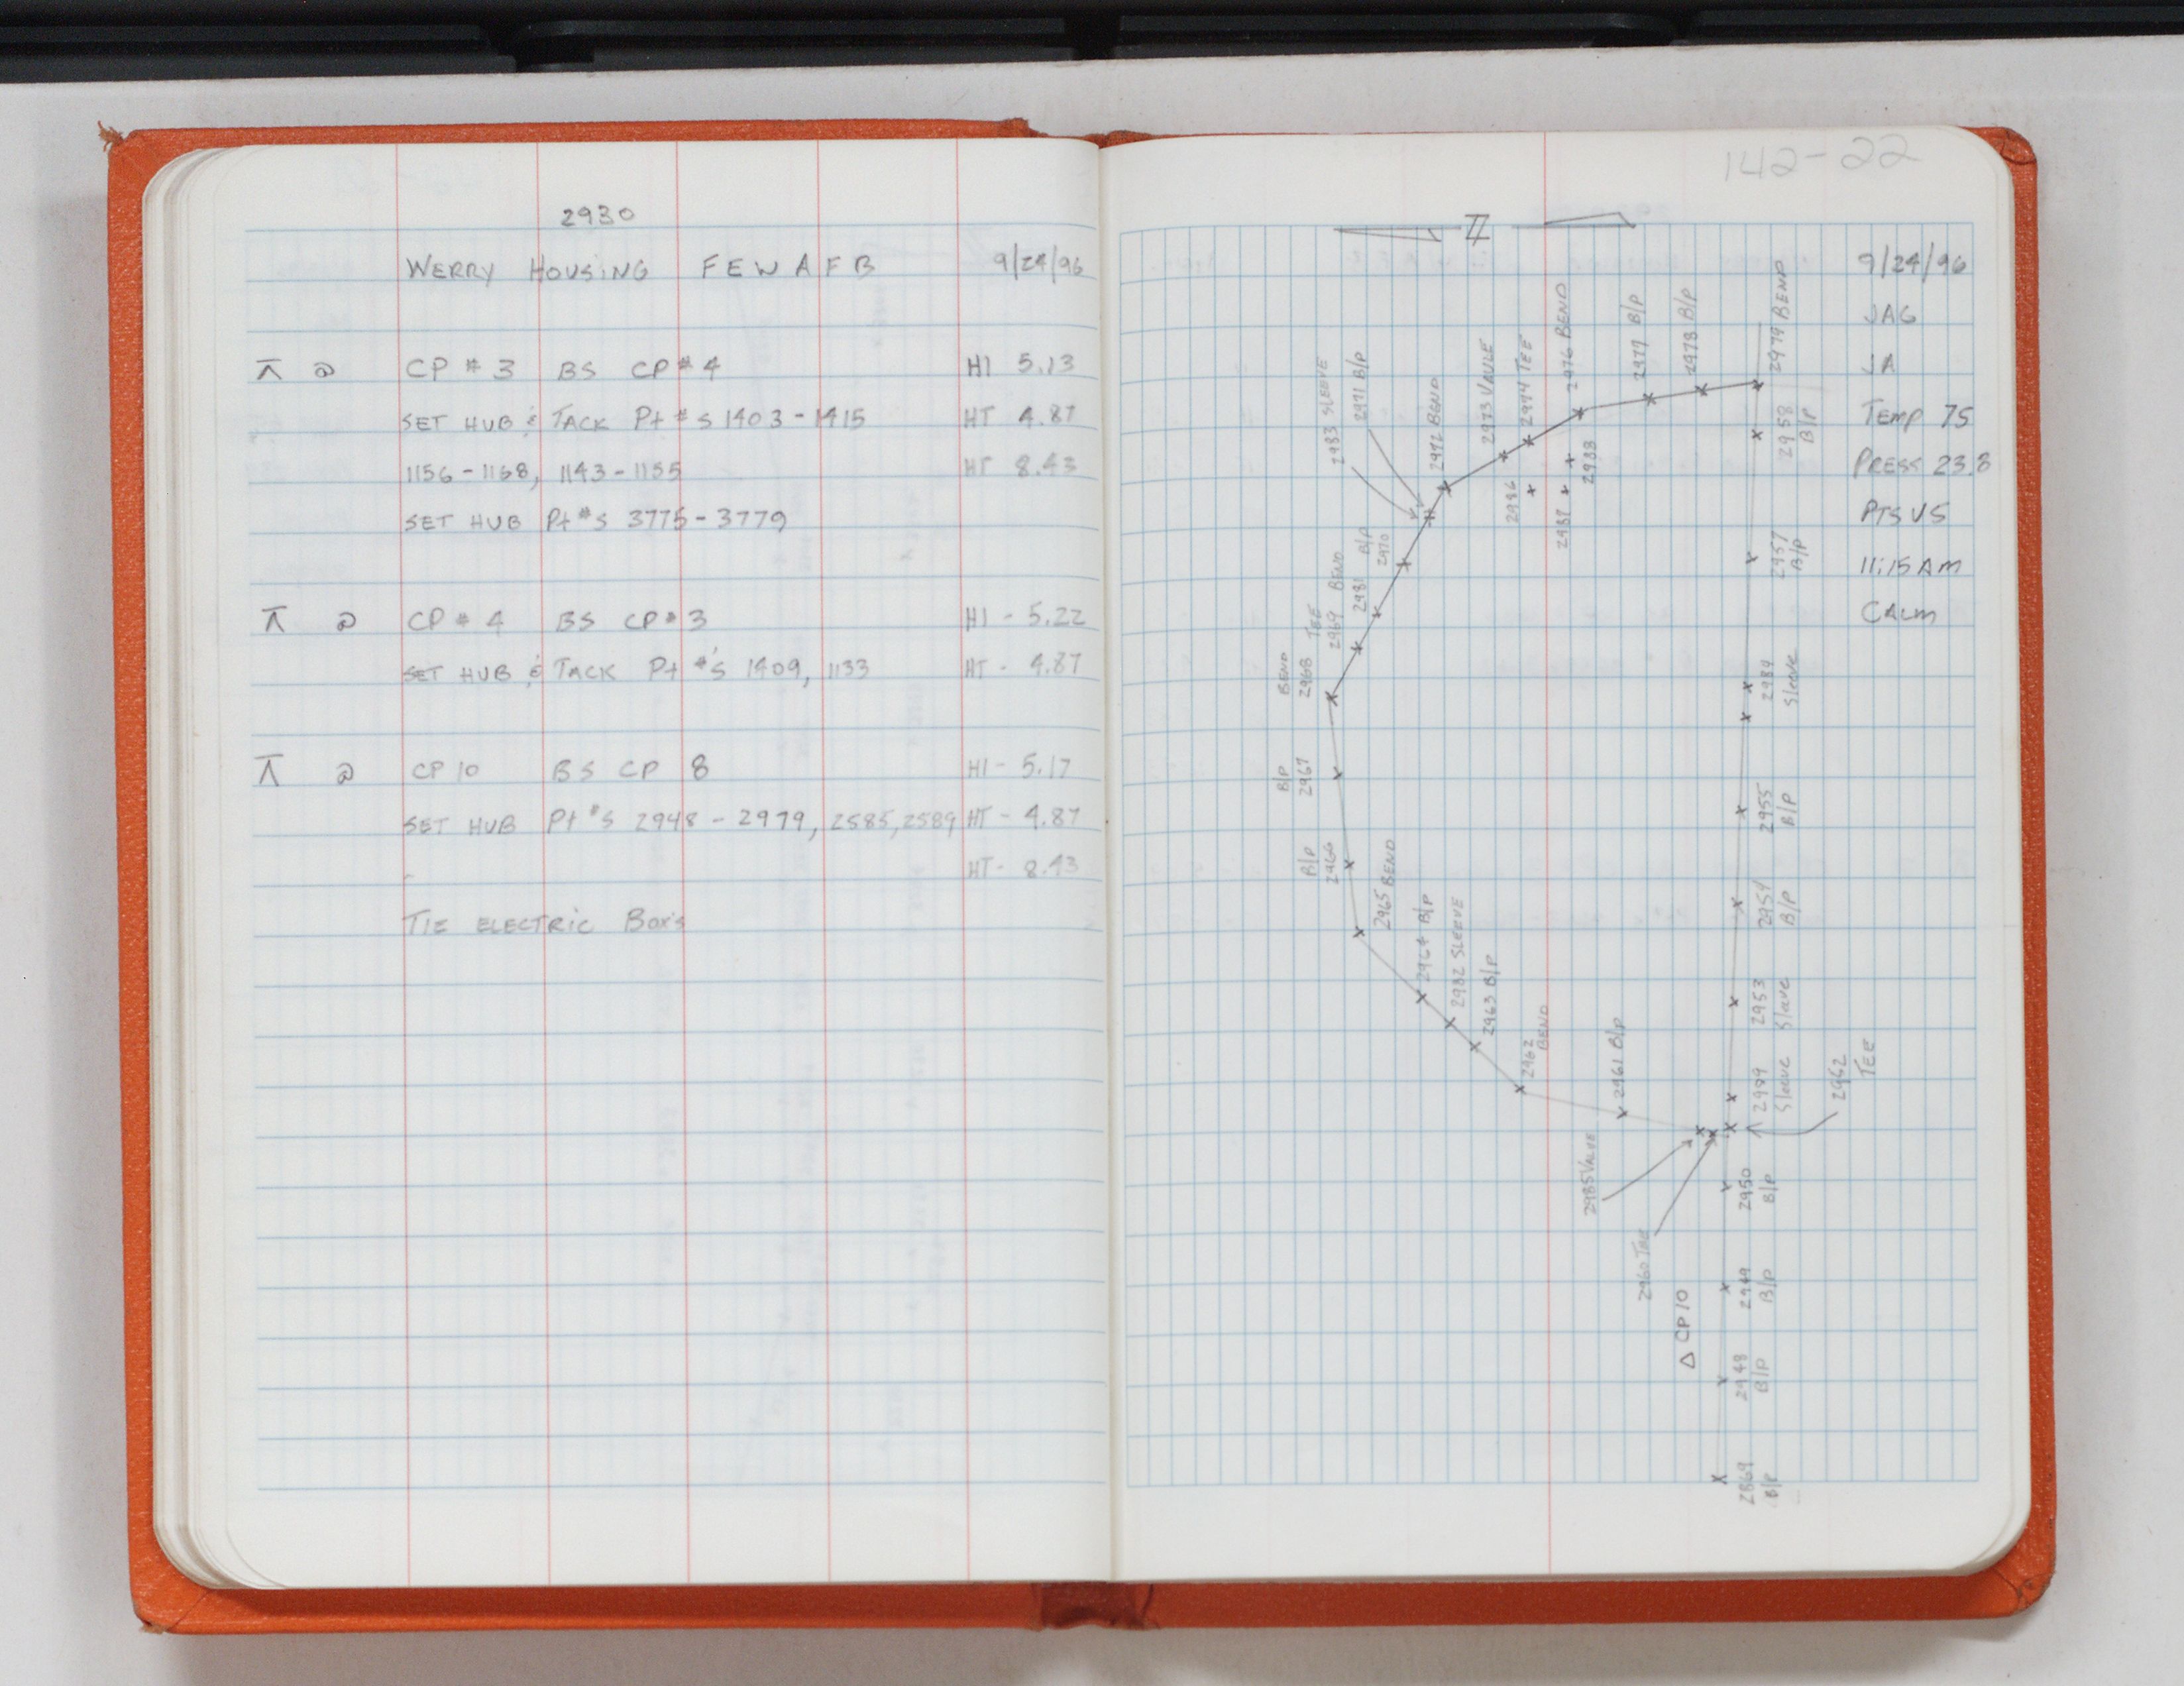 2930
WERRY HOUSING FEWAFB 9/24/96
⊼ @ CP # 3 BS CP # 4 HI 5.13
SET HUB & TACK Pt #S 1403 - 1415 HT 4.87
1156 - 1168, 1143 - 1155 HT 8.43
SET HUB Pt #S 3775 - 3779
⊼ @ CP # 4 BS CP # 3 HI - 5.22
SET HUB & TACK Pt #'S 1409, 1133 HT - 4.87
⊼ @ CP 10 BS CP 8 HI - 5.17
SET HUB Pt #S 2948 - 2979, 2585, 2589 HT - 4.87
HT - 8.43
TIE ELECTRIC BOX'S
142-22
9/24/96
JAG
JA
TEMP 75
PRESS 23.8
PTS VS
11:15 AM
CALM
2983 SLEEVE
2971 B/P
2972 BEND
2973 VAULE
2974 TEE
2976 BEND
2977 B/P
2978 B/P
2979 BEND
2958 B/P
2986
2987
2988
2957 B/P
2970 B/P
2981
2969 BEND
TEE
2968 BEND
2984 Sleeve
2967 B/P
2955 B/P
2966 B/P
2965 BEND
2954 B/P
2964 B/P
2982 SLEEVE
2963 B/P
2953 Sleeve
2962 BEND
2961 B/P
2989 Sleeve
2962 TEE
2985 VALVE
2960 TEE
2950 B/P
2949 B/P
Δ CP 10
2948 B/P
2869 B/P